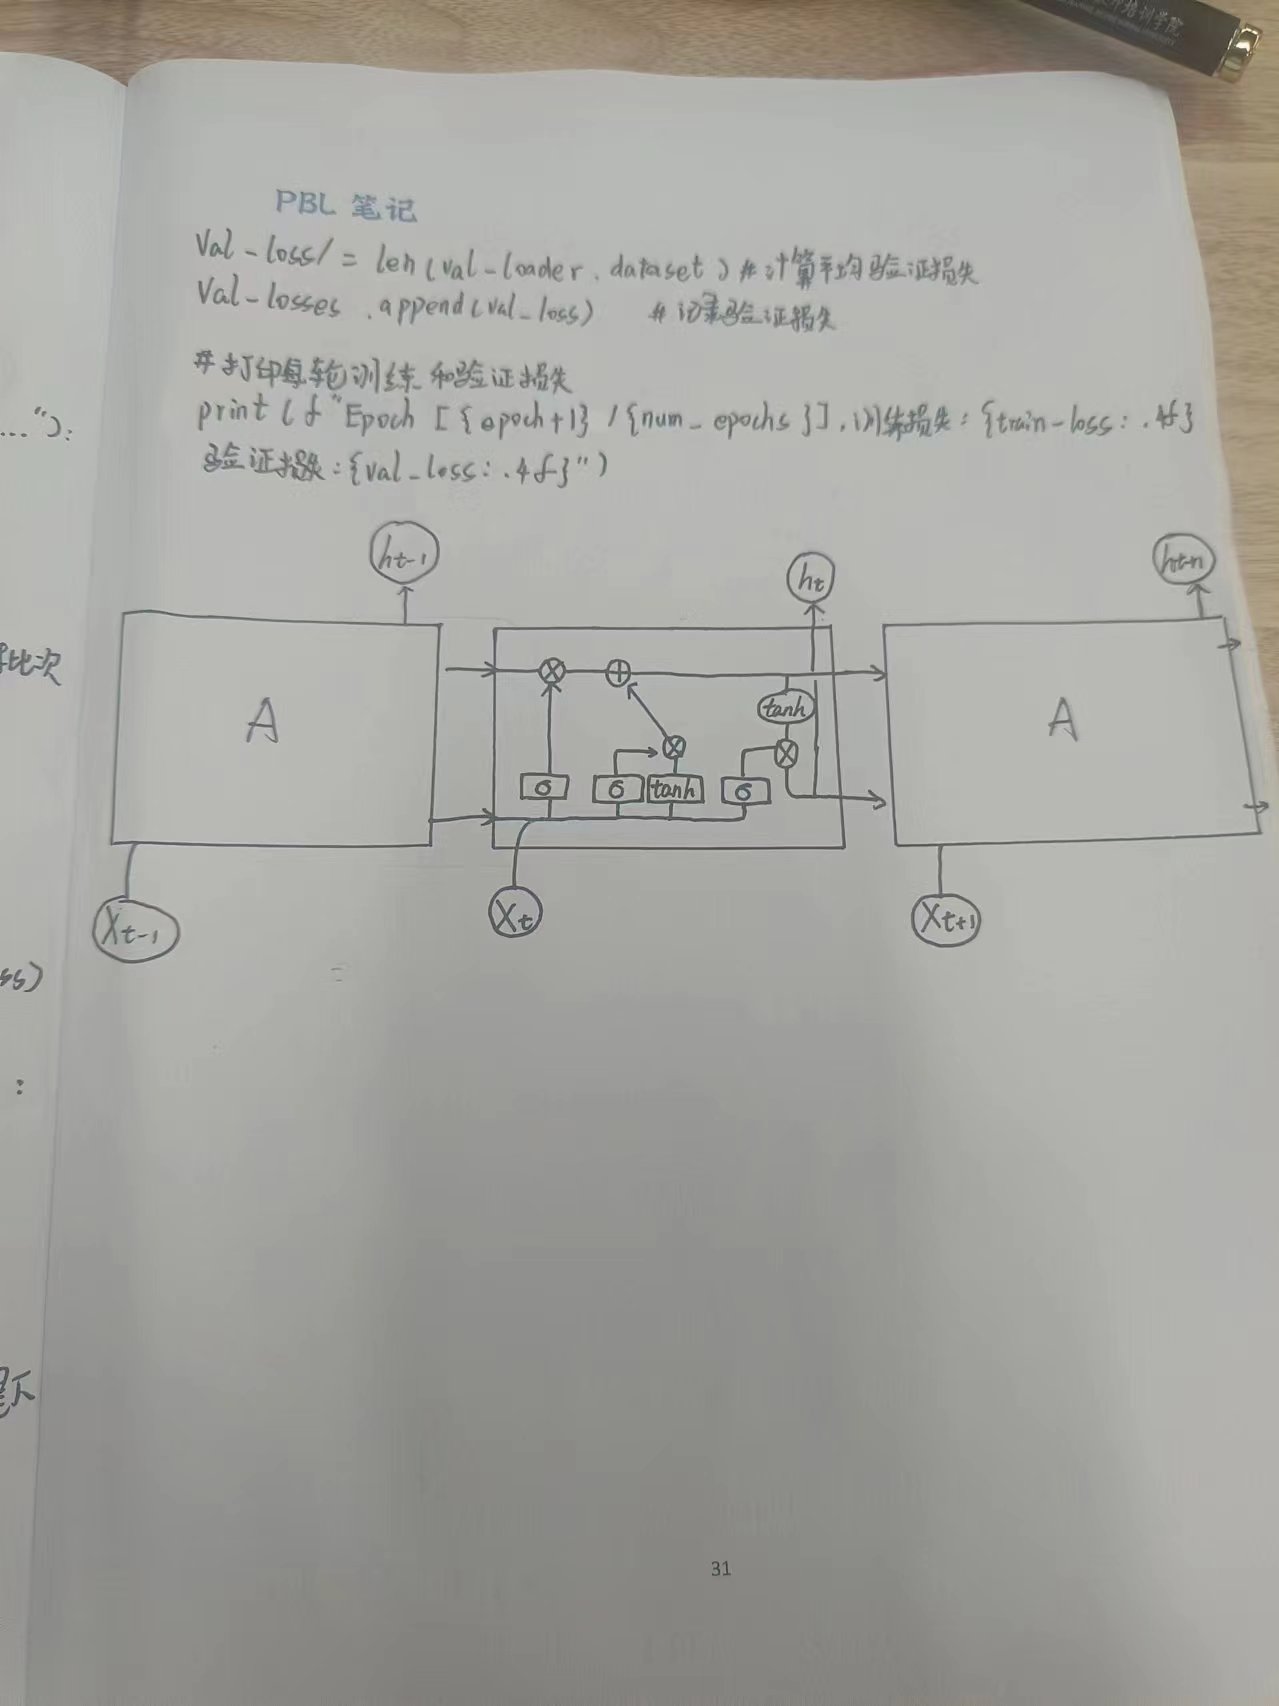 培训学院
PBL 笔记
Val-loss/= len(val-loader.dataset) #计算平均验证损失
Val-losses.append(val_loss) #记录验证损失
#打印每轮训练和验证损失
print(f"Epoch [{epoch+1}/{num_epochs}],训练损失:{train-loss:.4f}
验证损失:{val_loss:.4f}")
..."):
批次
ss)
:
ht-1
ht
A
A
tanh
σ
σ
tanh
σ
Xt-1
Xt
Xt+1
31